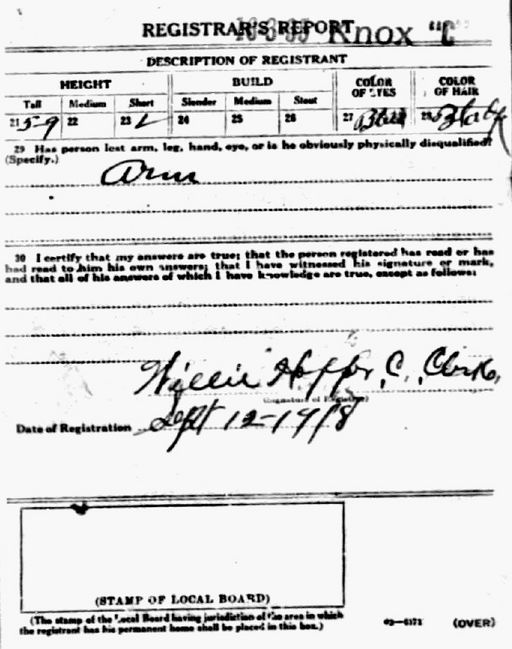 REGISTRAR'S REPORT
16-3-35 Knox "C"
DESCRIPTION OF REGISTRANT
HEIGHT BUILD COLOR OF EYES COLOR OF HAIR
Tall Medium Short Slender Medium Stout
21 5-9 22 23 24 25 26 27 28
29 Has person lost arm, leg, hand, eye, or is he obviously physically disqualified?
(Specify.)
Arm
30 I certify that my answers are true; that the person registered has read or has
had read to him his own answers; that I have witnessed his signature or mark,
and that all of his answers of which I have knowledge are true, except as follows:
Willie
(Signature of Registrar)
Date of Registration Sept 12-1918
(STAMP OF LOCAL BOARD)
(The stamp of the Local Board having jurisdiction of the area in which
the registrant has his permanent home shall be placed in this box.)
03-6171 (OVER)